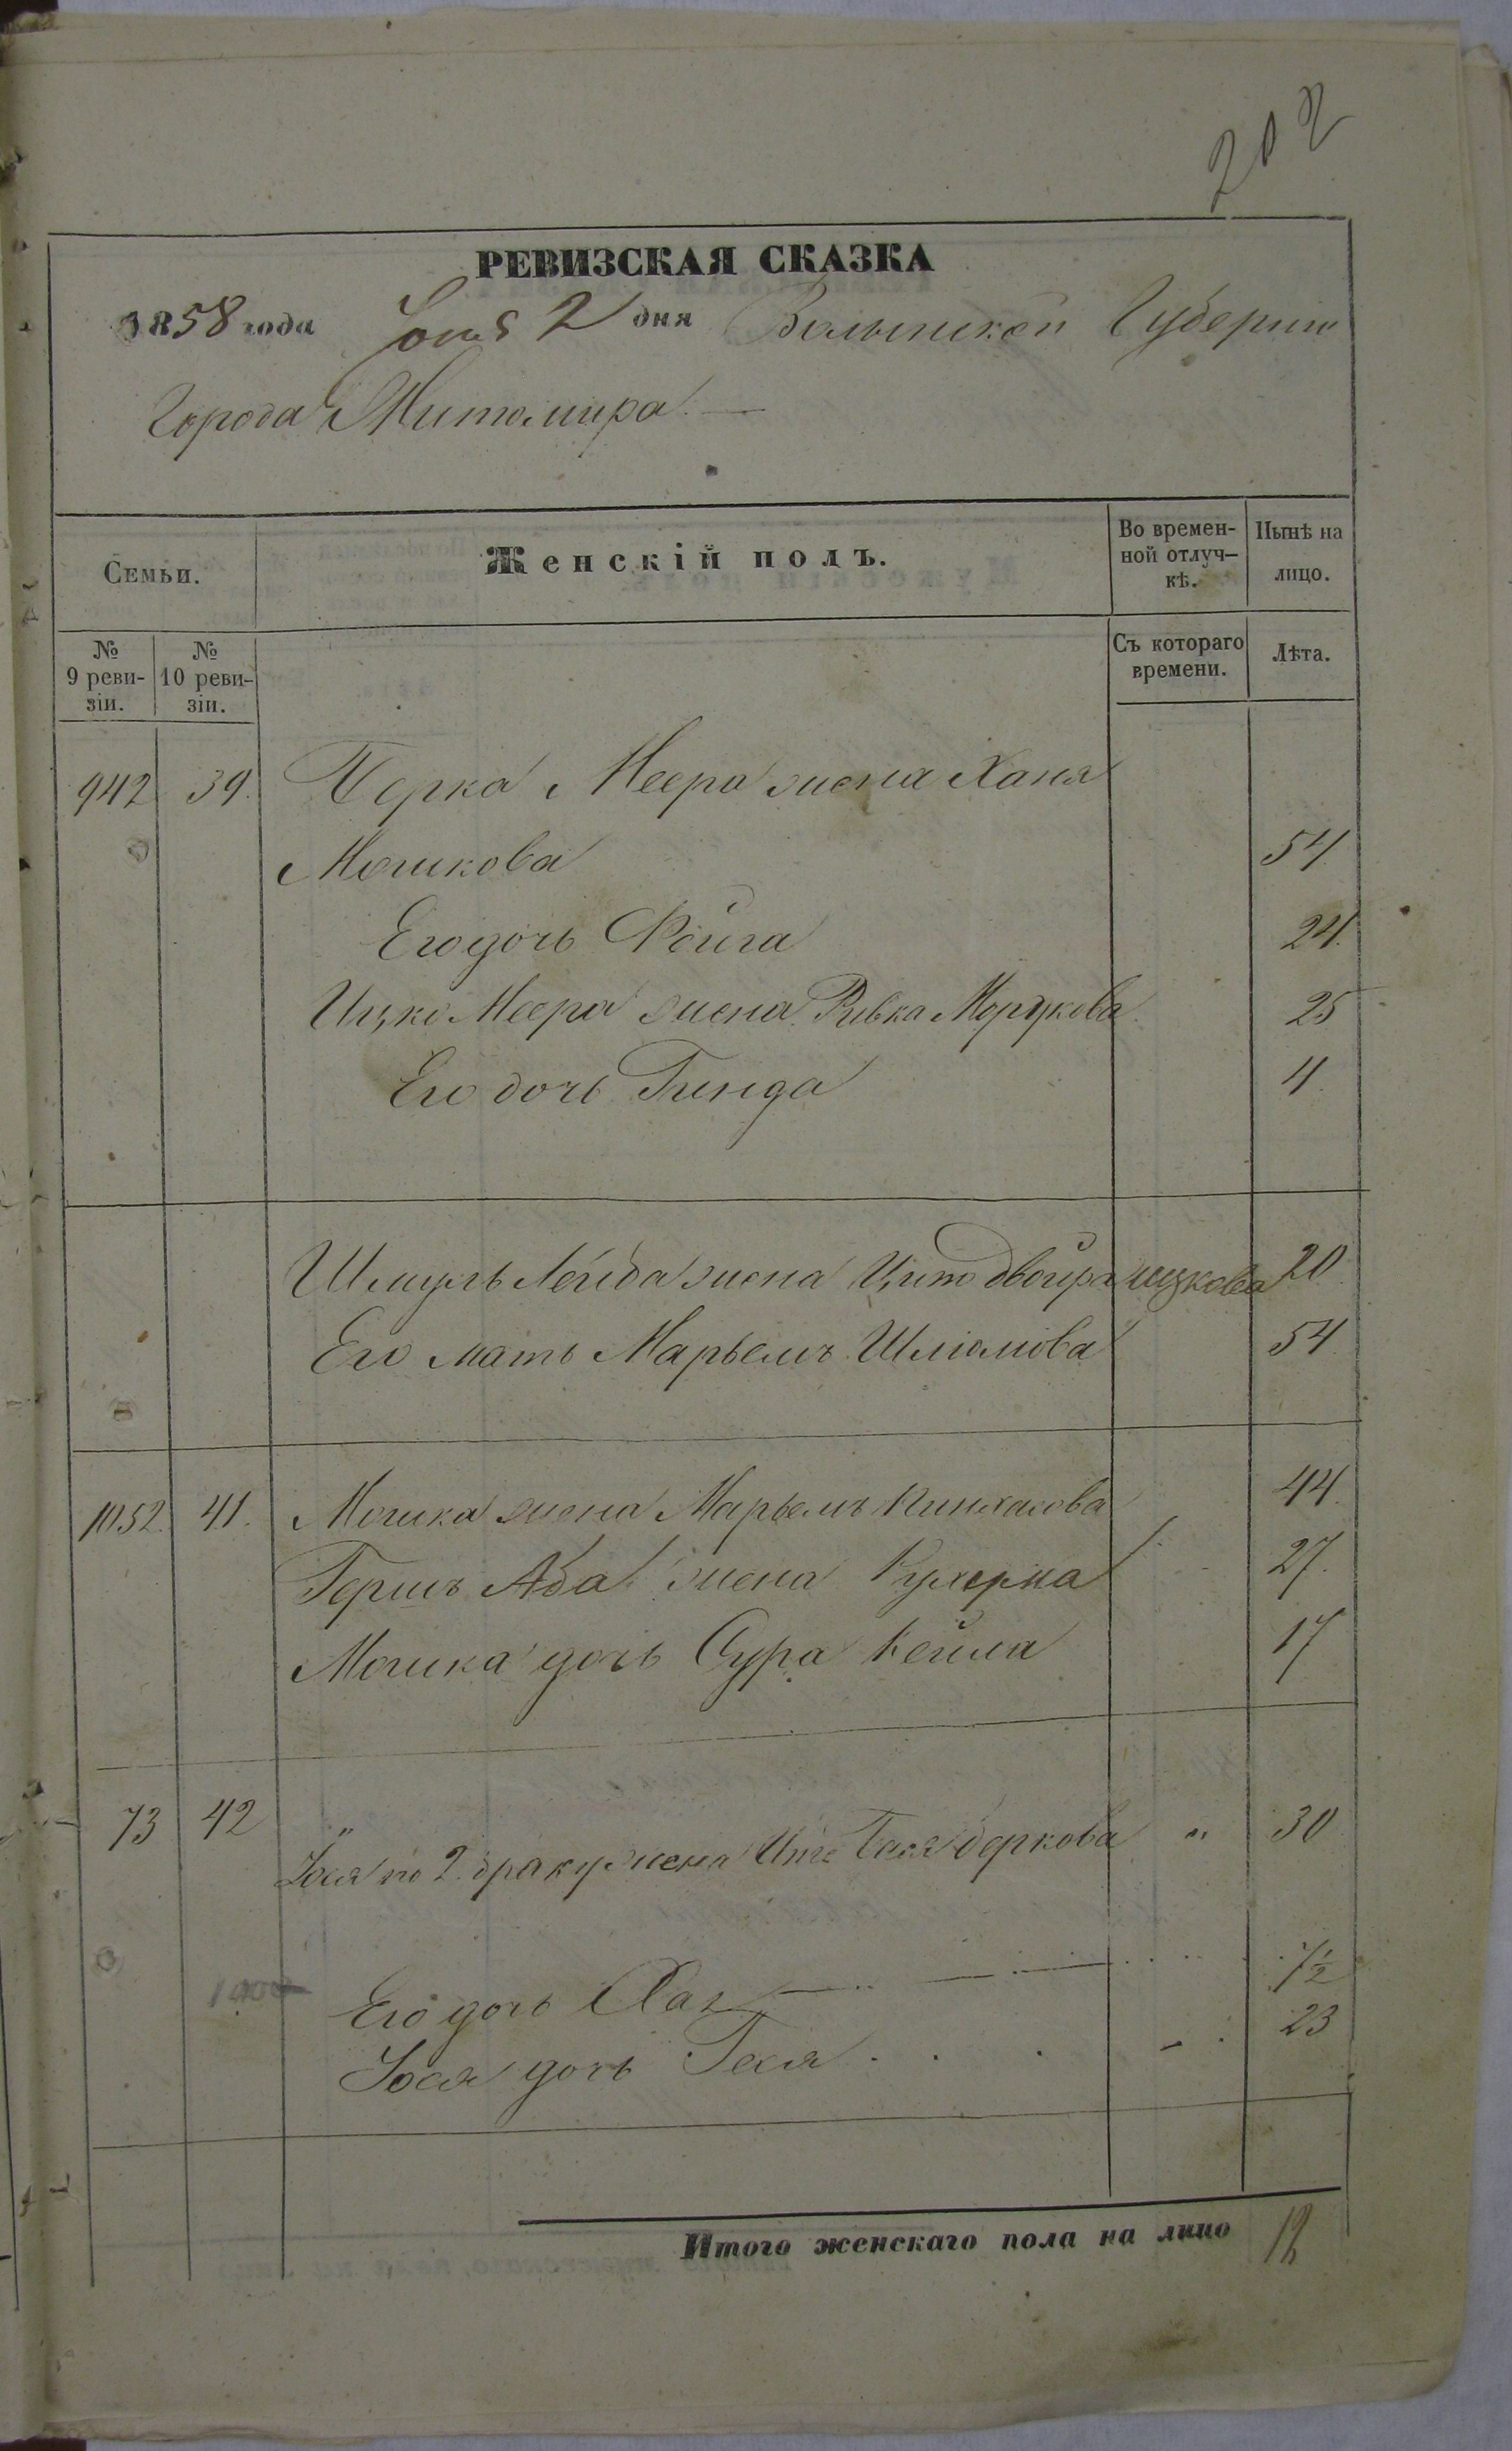 202
РЕВИЗСКАЯ СКАЗКА
1858 года Іюня 2 дня Волынской Губерніи
Города Житомира
Семьи.
Женскій полъ.
Во времен-
ной отлуч-
кѣ.
Нынѣ на
лицо.
№
9 реви-
зіи.
№
10 реви-
зіи.
Съ котораго
времени.
Лѣта.
942 39. Берка Меера жена Ханя
Мошкова 54
Его дочь Фейга 24.
Ицко Меера жена Ривка Мордкова 25
Его дочь Гинда 4.
Шмуль Лейба жена Двойра Ицкова 20
Его мать Марьемъ Шліомова 54
1052. 41. Мошка жена Марьемъ Пинхасова 44.
Гершъ Аба жена 27.
Мошка дочь Сура Кейла 17
73 42 Іося по 2. браку жена Бася Беркова " 30
Его дочь Хая 1/2
Іося дочь Геся 23
Итого женскаго пола на лицо 12